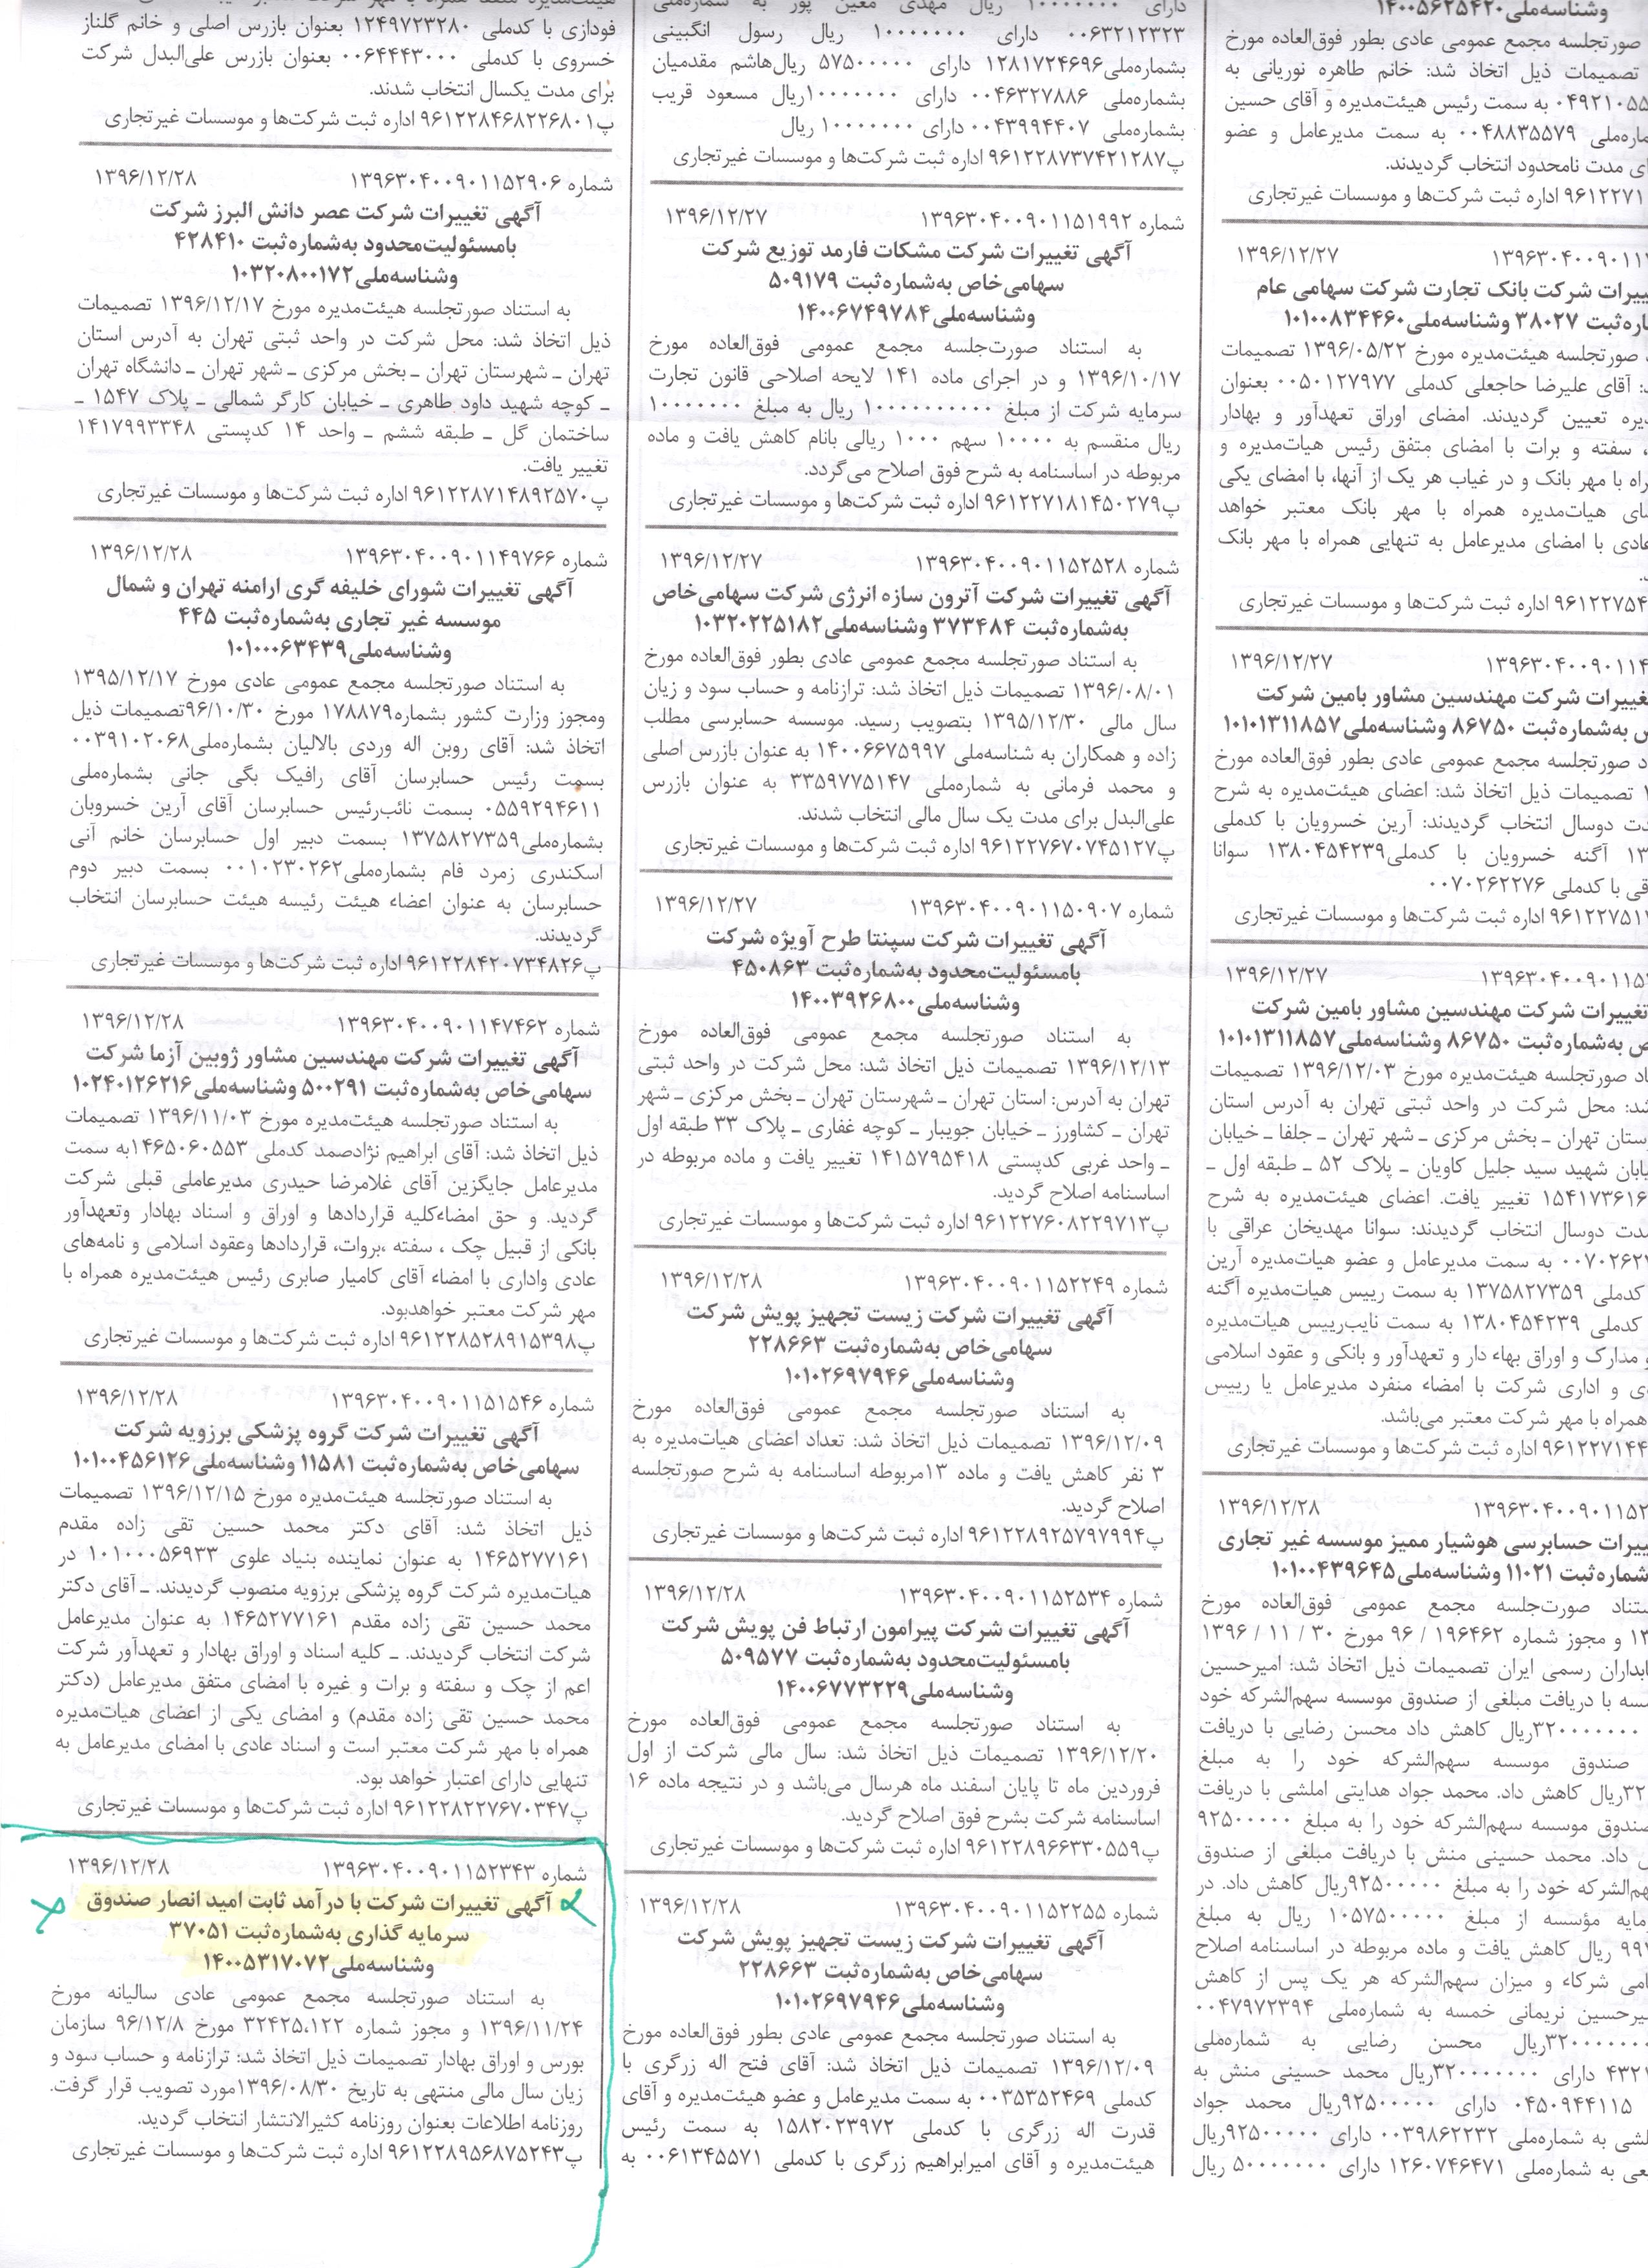 وشناسه‌ملی۱۴۰۰۵۶۲۵۴۲۰
صورتجلسه مجمع عمومی عادی بطور فوق‌العاده مورخ
تصمیمات ذیل اتخاذ شد: خانم طاهره نوریانی به
به سمت رئیس هیئت‌مدیره و آقای حسین
۰۰۴۸۸۳۵۵۷۹ به سمت مدیرعامل و عضو
مدت نامحدود انتخاب گردیدند.
اداره ثبت شرکت‌ها و موسسات غیرتجاری
۱۳۹۶/۱۲/۲۷
شرکت بانک تجارت شرکت سهامی عام
۳۸۰۲۷ وشناسه‌ملی۱۰۱۰۰۸۳۴۴۶۰
صورتجلسه هیئت‌مدیره مورخ ۱۳۹۶/۰۵/۲۲ تصمیمات
آقای علیرضا حاجعلی کدملی ۰۰۵۰۱۲۷۹۷۷ بعنوان
تعیین گردیدند. امضای اوراق تعهدآور و بهادار
سفته و برات با امضای متفق رئیس هیات‌مدیره و
با مهر بانک و در غیاب هر یک از آنها، با امضای یکی
هیات‌مدیره همراه با مهر بانک معتبر خواهد
با امضای مدیرعامل به تنهایی همراه با مهر بانک
اداره ثبت شرکت‌ها و موسسات غیرتجاری
۱۳۹۶/۱۲/۲۷
شرکت مهندسین مشاور بامین شرکت
به‌شماره‌ثبت ۸۶۷۵۰ وشناسه‌ملی۱۰۱۰۱۳۱۱۸۵۷
صورتجلسه مجمع عمومی عادی بطور فوق‌العاده مورخ
تصمیمات ذیل اتخاذ شد: اعضای هیئت‌مدیره به شرح
دوسال انتخاب گردیدند: آرین خسرویان با کدملی
آگنه خسرویان با کدملی۱۳۸۰۴۵۴۲۳۹ سوانا
با کدملی ۰۰۷۰۲۶۲۲۷۶
اداره ثبت شرکت‌ها و موسسات غیرتجاری
۱۳۹۶/۱۲/۲۷
تغییرات شرکت مهندسین مشاور بامین شرکت
به‌شماره‌ثبت ۸۶۷۵۰ وشناسه‌ملی۱۰۱۰۱۳۱۱۸۵۷
صورتجلسه هیئت‌مدیره مورخ ۱۳۹۶/۱۲/۰۳ تصمیمات
شد: محل شرکت در واحد ثبتی تهران به آدرس استان
تهران ـ بخش مرکزی ـ شهر تهران ـ جلفا ـ خیابان
شهید سید جلیل کاویان ـ پلاک ۵۲ ـ طبقه اول ـ
تغییر یافت. اعضای هیئت‌مدیره به شرح
دوسال انتخاب گردیدند: سوانا مهدیخان عراقی با
به سمت مدیرعامل و عضو هیات‌مدیره آرین
کدملی ۱۳۷۵۸۲۷۳۵۹ به سمت رییس هیات‌مدیره آگنه
کدملی ۱۳۸۰۴۵۴۲۳۹ به سمت نایب‌رییس هیات‌مدیره
و مدارک و اوراق بهاء دار و تعهدآور و بانکی و عقود اسلامی
و اداری شرکت با امضاء منفرد مدیرعامل یا رییس
همراه با مهر شرکت معتبر می‌باشد.
اداره ثبت شرکت‌ها و موسسات غیرتجاری
۱۳۹۶/۱۲/۲۸
حسابرسی هوشیار ممیز موسسه غیر تجاری
۱۱۰۲۱ وشناسه‌ملی۱۰۱۰۰۴۳۹۶۴۵
صورت‌جلسه مجمع عمومی فوق‌العاده مورخ
و مجوز شماره ۱۹۶۴۶۲ / ۹۶ مورخ ۳۰ / ۱۱ / ۱۳۹۶
رسمی ایران تصمیمات ذیل اتخاذ شد: امیرحسین
با دریافت مبلغی از صندوق موسسه سهم‌الشرکه خود
کاهش داد محسن رضایی با دریافت
صندوق موسسه سهم‌الشرکه خود را به مبلغ
کاهش داد. محمد جواد هدایتی املشی با دریافت
موسسه سهم‌الشرکه خود را به مبلغ ۹۲۵۰۰۰۰۰
داد. محمد حسینی منش با دریافت مبلغی از صندوق
خود را به مبلغ ۹۲۵۰۰۰۰۰ریال کاهش داد. در
مؤسسه از مبلغ ۱۰۵۷۵۰۰۰۰۰ ریال به مبلغ
ریال کاهش یافت و ماده مربوطه در اساسنامه اصلاح
شرکاء و میزان سهم‌الشرکه هر یک پس از کاهش
نریمانی خمسه به شماره‌ملی ۰۰۴۷۹۷۲۳۹۴
محسن رضایی به شماره‌ملی
دارای ۳۲۰۰۰۰۰۰۰ریال محمد حسینی منش به
۰۴۵۰۹۴۴۱۱۵ دارای ۹۲۵۰۰۰۰۰ریال محمد جواد
به شماره‌ملی ۰۰۳۹۸۶۲۲۳۲ دارای ۹۲۵۰۰۰۰۰ریال
به شماره‌ملی ۱۲۶۰۷۴۶۴۷۱ دارای ۵۰۰۰۰۰۰۰ ریال
دارای ۱۰۰۰۰۰۰۰ ریال مهدی معین پور به شماره‌ملی
۰۰۶۳۲۱۲۳۲۳ دارای ۱۰۰۰۰۰۰۰ ریال رسول انگبینی
بشماره‌ملی۱۲۸۱۷۲۴۶۹۶ دارای ۵۷۵۰۰۰۰۰ ریال‌هاشم مقدمیان
بشماره‌ملی ۰۰۴۶۳۲۷۸۸۶ دارای ۱۰۰۰۰۰۰۰ریال مسعود قریب
بشماره‌ملی ۰۰۴۳۹۹۴۴۰۷ دارای ۱۰۰۰۰۰۰۰ ریال
پ۹۶۱۲۲۸۷۳۷۴۲۱۲۸۷ اداره ثبت شرکت‌ها و موسسات غیرتجاری
شماره ۱۳۹۶۳۰۴۰۰۹۰۱۱۵۱۹۹۲ ۱۳۹۶/۱۲/۲۷
آگهی تغییرات شرکت مشکات فارمد توزیع شرکت
سهامی‌خاص به‌شماره‌ثبت ۵۰۹۱۷۹
وشناسه‌ملی۱۴۰۰۶۷۴۹۷۸۴
به استناد صورت‌جلسه مجمع عمومی فوق‌العاده مورخ
۱۳۹۶/۱۰/۱۷ و در اجرای ماده ۱۴۱ لایحه اصلاحی قانون تجارت
سرمایه شرکت از مبلغ ۱۰۰۰۰۰۰۰۰۰۰ ریال به مبلغ ۱۰۰۰۰۰۰۰
ریال منقسم به ۱۰۰۰۰ سهم ۱۰۰۰ ریالی بانام کاهش یافت و ماده
مربوطه در اساسنامه به شرح فوق اصلاح می‌گردد.
پ۹۶۱۲۲۷۱۸۱۴۵۰۲۷۹ اداره ثبت شرکت‌ها و موسسات غیرتجاری
شماره ۱۳۹۶۳۰۴۰۰۹۰۱۱۵۲۵۲۸ ۱۳۹۶/۱۲/۲۷
آگهی تغییرات شرکت آترون سازه انرژی شرکت سهامی‌خاص
به‌شماره‌ثبت ۳۷۳۴۸۴ وشناسه‌ملی۱۰۳۲۰۲۲۵۱۸۲
به استناد صورتجلسه مجمع عمومی عادی بطور فوق‌العاده مورخ
۱۳۹۶/۰۸/۰۱ تصمیمات ذیل اتخاذ شد: ترازنامه و حساب سود و زیان
سال مالی ۱۳۹۵/۱۲/۳۰ بتصویب رسید. موسسه حسابرسی مطلب
زاده و همکاران به شناسه‌ملی ۱۴۰۰۶۶۷۵۹۹۷ به عنوان بازرس اصلی
و محمد فرمانی به شماره‌ملی ۳۳۵۹۷۷۵۱۴۷ به عنوان بازرس
علی‌البدل برای مدت یک سال مالی انتخاب شدند.
پ۹۶۱۲۲۷۶۷۰۷۴۵۱۲۷ اداره ثبت شرکت‌ها و موسسات غیرتجاری
شماره ۱۳۹۶۳۰۴۰۰۹۰۱۱۵۰۹۰۷ ۱۳۹۶/۱۲/۲۷
آگهی تغییرات شرکت سپنتا طرح آویژه شرکت
بامسئولیت‌محدود به‌شماره‌ثبت ۴۵۰۸۶۳
وشناسه‌ملی۱۴۰۰۳۹۲۶۸۰۰
به استناد صورتجلسه مجمع عمومی فوق‌العاده مورخ
۱۳۹۶/۱۲/۱۳ تصمیمات ذیل اتخاذ شد: محل شرکت در واحد ثبتی
تهران به آدرس: استان تهران ـ شهرستان تهران ـ بخش مرکزی ـ شهر
تهران ـ کشاورز ـ خیابان جویبار ـ کوچه غفاری ـ پلاک ۳۳ طبقه اول
ـ واحد غربی کدپستی ۱۴۱۵۷۹۵۴۱۸ تغییر یافت و ماده مربوطه در
اساسنامه اصلاح گردید.
پ۹۶۱۲۲۷۶۰۸۲۲۹۷۱۳ اداره ثبت شرکت‌ها و موسسات غیرتجاری
شماره ۱۳۹۶۳۰۴۰۰۹۰۱۱۵۲۲۴۹ ۱۳۹۶/۱۲/۲۸
آگهی تغییرات شرکت زیست تجهیز پویش شرکت
سهامی‌خاص به‌شماره‌ثبت ۲۲۸۶۶۳
وشناسه‌ملی۱۰۱۰۲۶۹۷۹۴۶
به استناد صورتجلسه مجمع عمومی فوق‌العاده مورخ
۱۳۹۶/۱۲/۰۹ تصمیمات ذیل اتخاذ شد: تعداد اعضای هیات‌مدیره به
۳ نفر کاهش یافت و ماده ۱۳مربوطه اساسنامه به شرح صورتجلسه
اصلاح گردید.
پ۹۶۱۲۲۸۹۲۵۷۹۷۹۹۴ اداره ثبت شرکت‌ها و موسسات غیرتجاری
شماره ۱۳۹۶۳۰۴۰۰۹۰۱۱۵۲۵۳۴ ۱۳۹۶/۱۲/۲۸
آگهی تغییرات شرکت پیرامون ارتباط فن پویش شرکت
بامسئولیت‌محدود به‌شماره‌ثبت ۵۰۹۵۷۷
وشناسه‌ملی۱۴۰۰۶۷۷۳۲۲۹
به استناد صورتجلسه مجمع عمومی فوق‌العاده مورخ
۱۳۹۶/۱۲/۲۰ تصمیمات ذیل اتخاذ شد: سال مالی شرکت از اول
فروردین ماه تا پایان اسفند ماه هرسال می‌باشد و در نتیجه ماده ۱۶
اساسنامه شرکت بشرح فوق اصلاح گردید.
پ۹۶۱۲۲۸۹۶۶۳۳۰۵۵۹ اداره ثبت شرکت‌ها و موسسات غیرتجاری
شماره ۱۳۹۶۳۰۴۰۰۹۰۱۱۵۲۲۵۵ ۱۳۹۶/۱۲/۲۸
آگهی تغییرات شرکت زیست تجهیز پویش شرکت
سهامی‌خاص به‌شماره‌ثبت ۲۲۸۶۶۳
وشناسه‌ملی۱۰۱۰۲۶۹۷۹۴۶
به استناد صورتجلسه مجمع عمومی عادی بطور فوق‌العاده مورخ
۱۳۹۶/۱۲/۰۹ تصمیمات ذیل اتخاذ شد: آقای فتح اله زرگری با
کدملی ۰۰۳۵۳۵۲۴۶۹ به سمت مدیرعامل و عضو هیئت‌مدیره و آقای
قدرت اله زرگری با کدملی ۱۵۸۲۰۲۳۹۷۲ به سمت رئیس
هیئت‌مدیره و آقای امیرابراهیم زرگری با کدملی ۰۰۶۱۳۴۵۵۷۱ به
فودازی با کدملی ۱۲۴۹۷۲۳۲۸۰ بعنوان بازرس اصلی و خانم گلناز
خسروی با کدملی ۰۰۶۴۴۴۳۰۰۰ بعنوان بازرس علی‌البدل شرکت
برای مدت یکسال انتخاب شدند.
پ۹۶۱۲۲۸۴۶۸۲۲۶۸۰۱ اداره ثبت شرکت‌ها و موسسات غیرتجاری
شماره ۱۳۹۶۳۰۴۰۰۹۰۱۱۵۲۹۰۶ ۱۳۹۶/۱۲/۲۸
آگهی تغییرات شرکت عصر دانش البرز شرکت
بامسئولیت‌محدود به‌شماره‌ثبت ۴۲۸۴۱۰
وشناسه‌ملی۱۰۳۲۰۸۰۰۱۷۲
به استناد صورتجلسه هیئت‌مدیره مورخ ۱۳۹۶/۱۲/۱۷ تصمیمات
ذیل اتخاذ شد: محل شرکت در واحد ثبتی تهران به آدرس استان
تهران ـ شهرستان تهران ـ بخش مرکزی ـ شهر تهران ـ دانشگاه تهران
ـ کوچه شهید داود طاهری ـ خیابان کارگر شمالی ـ پلاک ۱۵۴۷ ـ
ساختمان گل ـ طبقه ششم ـ واحد ۱۴ کدپستی ۱۴۱۷۹۹۳۳۴۸
تغییر یافت.
پ۹۶۱۲۲۸۷۱۴۸۹۲۵۷۰ اداره ثبت شرکت‌ها و موسسات غیرتجاری
شماره ۱۳۹۶۳۰۴۰۰۹۰۱۱۴۹۷۶۶ ۱۳۹۶/۱۲/۲۸
آگهی تغییرات شورای خلیفه گری ارامنه تهران و شمال
موسسه غیر تجاری به‌شماره‌ثبت ۴۴۵
وشناسه‌ملی۱۰۱۰۰۰۶۳۴۳۹
به استناد صورتجلسه مجمع عمومی عادی مورخ ۱۳۹۵/۱۲/۱۷
ومجوز وزارت کشور بشماره۱۷۸۸۷۹ مورخ ۹۶/۱۰/۳۰تصمیمات ذیل
اتخاذ شد: آقای روبن اله وردی بالالیان بشماره‌ملی۰۰۳۹۱۰۲۰۶۸
بسمت رئیس حسابرسان آقای رافیک بگی جانی بشماره‌ملی
۰۵۵۹۲۹۴۶۱۱ بسمت نائب‌رئیس حسابرسان آقای آرین خسرویان
بشماره‌ملی۱۳۷۵۸۲۷۳۵۹ بسمت دبیر اول حسابرسان خانم آنی
اسکندری زمرد فام بشماره‌ملی۰۰۱۰۲۳۰۲۶۲ بسمت دبیر دوم
حسابرسان به عنوان اعضاء هیئت رئیسه هیئت حسابرسان انتخاب
گردیدند.
پ۹۶۱۲۲۸۴۲۰۷۳۴۸۲۶ اداره ثبت شرکت‌ها و موسسات غیرتجاری
شماره ۱۳۹۶۳۰۴۰۰۹۰۱۱۴۷۴۶۲ ۱۳۹۶/۱۲/۲۸
آگهی تغییرات شرکت مهندسین مشاور ژوبین آزما شرکت
سهامی‌خاص به‌شماره‌ثبت ۵۰۰۲۹۱ وشناسه‌ملی۱۰۲۴۰۱۲۶۲۱۶
به استناد صورتجلسه هیئت‌مدیره مورخ ۱۳۹۶/۱۱/۰۳ تصمیمات
ذیل اتخاذ شد: آقای ابراهیم نژادصمد کدملی ۱۴۶۵۰۶۰۵۵۳به سمت
مدیرعامل جایگزین آقای غلامرضا حیدری مدیرعاملی قبلی شرکت
گردید. و حق امضاءکلیه قراردادها و اوراق و اسناد بهادار وتعهدآور
بانکی از قبیل چک ، سفته ،بروات، قراردادها وعقود اسلامی و نامه‌های
عادی واداری با امضاء آقای کامیار صابری رئیس هیئت‌مدیره همراه با
مهر شرکت معتبر خواهدبود.
پ۹۶۱۲۲۸۵۲۸۹۱۵۳۹۸ اداره ثبت شرکت‌ها و موسسات غیرتجاری
شماره ۱۳۹۶۳۰۴۰۰۹۰۱۱۵۱۵۴۶ ۱۳۹۶/۱۲/۲۸
آگهی تغییرات شرکت گروه پزشکی برزویه شرکت
سهامی‌خاص به‌شماره‌ثبت ۱۱۵۸۱ وشناسه‌ملی۱۰۱۰۰۴۵۶۱۲۶
به استناد صورتجلسه هیئت‌مدیره مورخ ۱۳۹۶/۱۲/۱۵ تصمیمات
ذیل اتخاذ شد: آقای دکتر محمد حسین تقی زاده مقدم
۱۴۶۵۲۷۷۱۶۱ به عنوان نماینده بنیاد علوی ۱۰۱۰۰۰۵۶۹۳۳ در
هیات‌مدیره شرکت گروه پزشکی برزویه منصوب گردیدند. ـ آقای دکتر
محمد حسین تقی زاده مقدم ۱۴۶۵۲۷۷۱۶۱ به عنوان مدیرعامل
شرکت انتخاب گردیدند. ـ کلیه اسناد و اوراق بهادار و تعهدآور شرکت
اعم از چک و سفته و برات و غیره با امضای متفق مدیرعامل (دکتر
محمد حسین تقی زاده مقدم) و امضای یکی از اعضای هیات‌مدیره
همراه با مهر شرکت معتبر است و اسناد عادی با امضای مدیرعامل به
تنهایی دارای اعتبار خواهد بود.
پ۹۶۱۲۲۸۲۲۷۶۷۰۳۴۷ اداره ثبت شرکت‌ها و موسسات غیرتجاری
شماره ۱۳۹۶۳۰۴۰۰۹۰۱۱۵۲۳۴۳ ۱۳۹۶/۱۲/۲۸
آگهی تغییرات شرکت با درآمد ثابت امید انصار صندوق
سرمایه گذاری به‌شماره‌ثبت ۳۷۰۵۱
وشناسه‌ملی۱۴۰۰۵۳۱۷۰۷۲
به استناد صورتجلسه مجمع عمومی عادی سالیانه مورخ
۱۳۹۶/۱۱/۲۴ و مجوز شماره ۳۲۴۲۵،۱۲۲ مورخ ۹۶/۱۲/۸ سازمان
بورس و اوراق بهادار تصمیمات ذیل اتخاذ شد: ترازنامه و حساب سود و
زیان سال مالی منتهی به تاریخ ۱۳۹۶/۰۸/۳۰مورد تصویب قرار گرفت.
روزنامه اطلاعات بعنوان روزنامه کثیرالانتشار انتخاب گردید.
پ۹۶۱۲۲۸۹۵۶۸۷۵۲۴۳ اداره ثبت شرکت‌ها و موسسات غیرتجاری